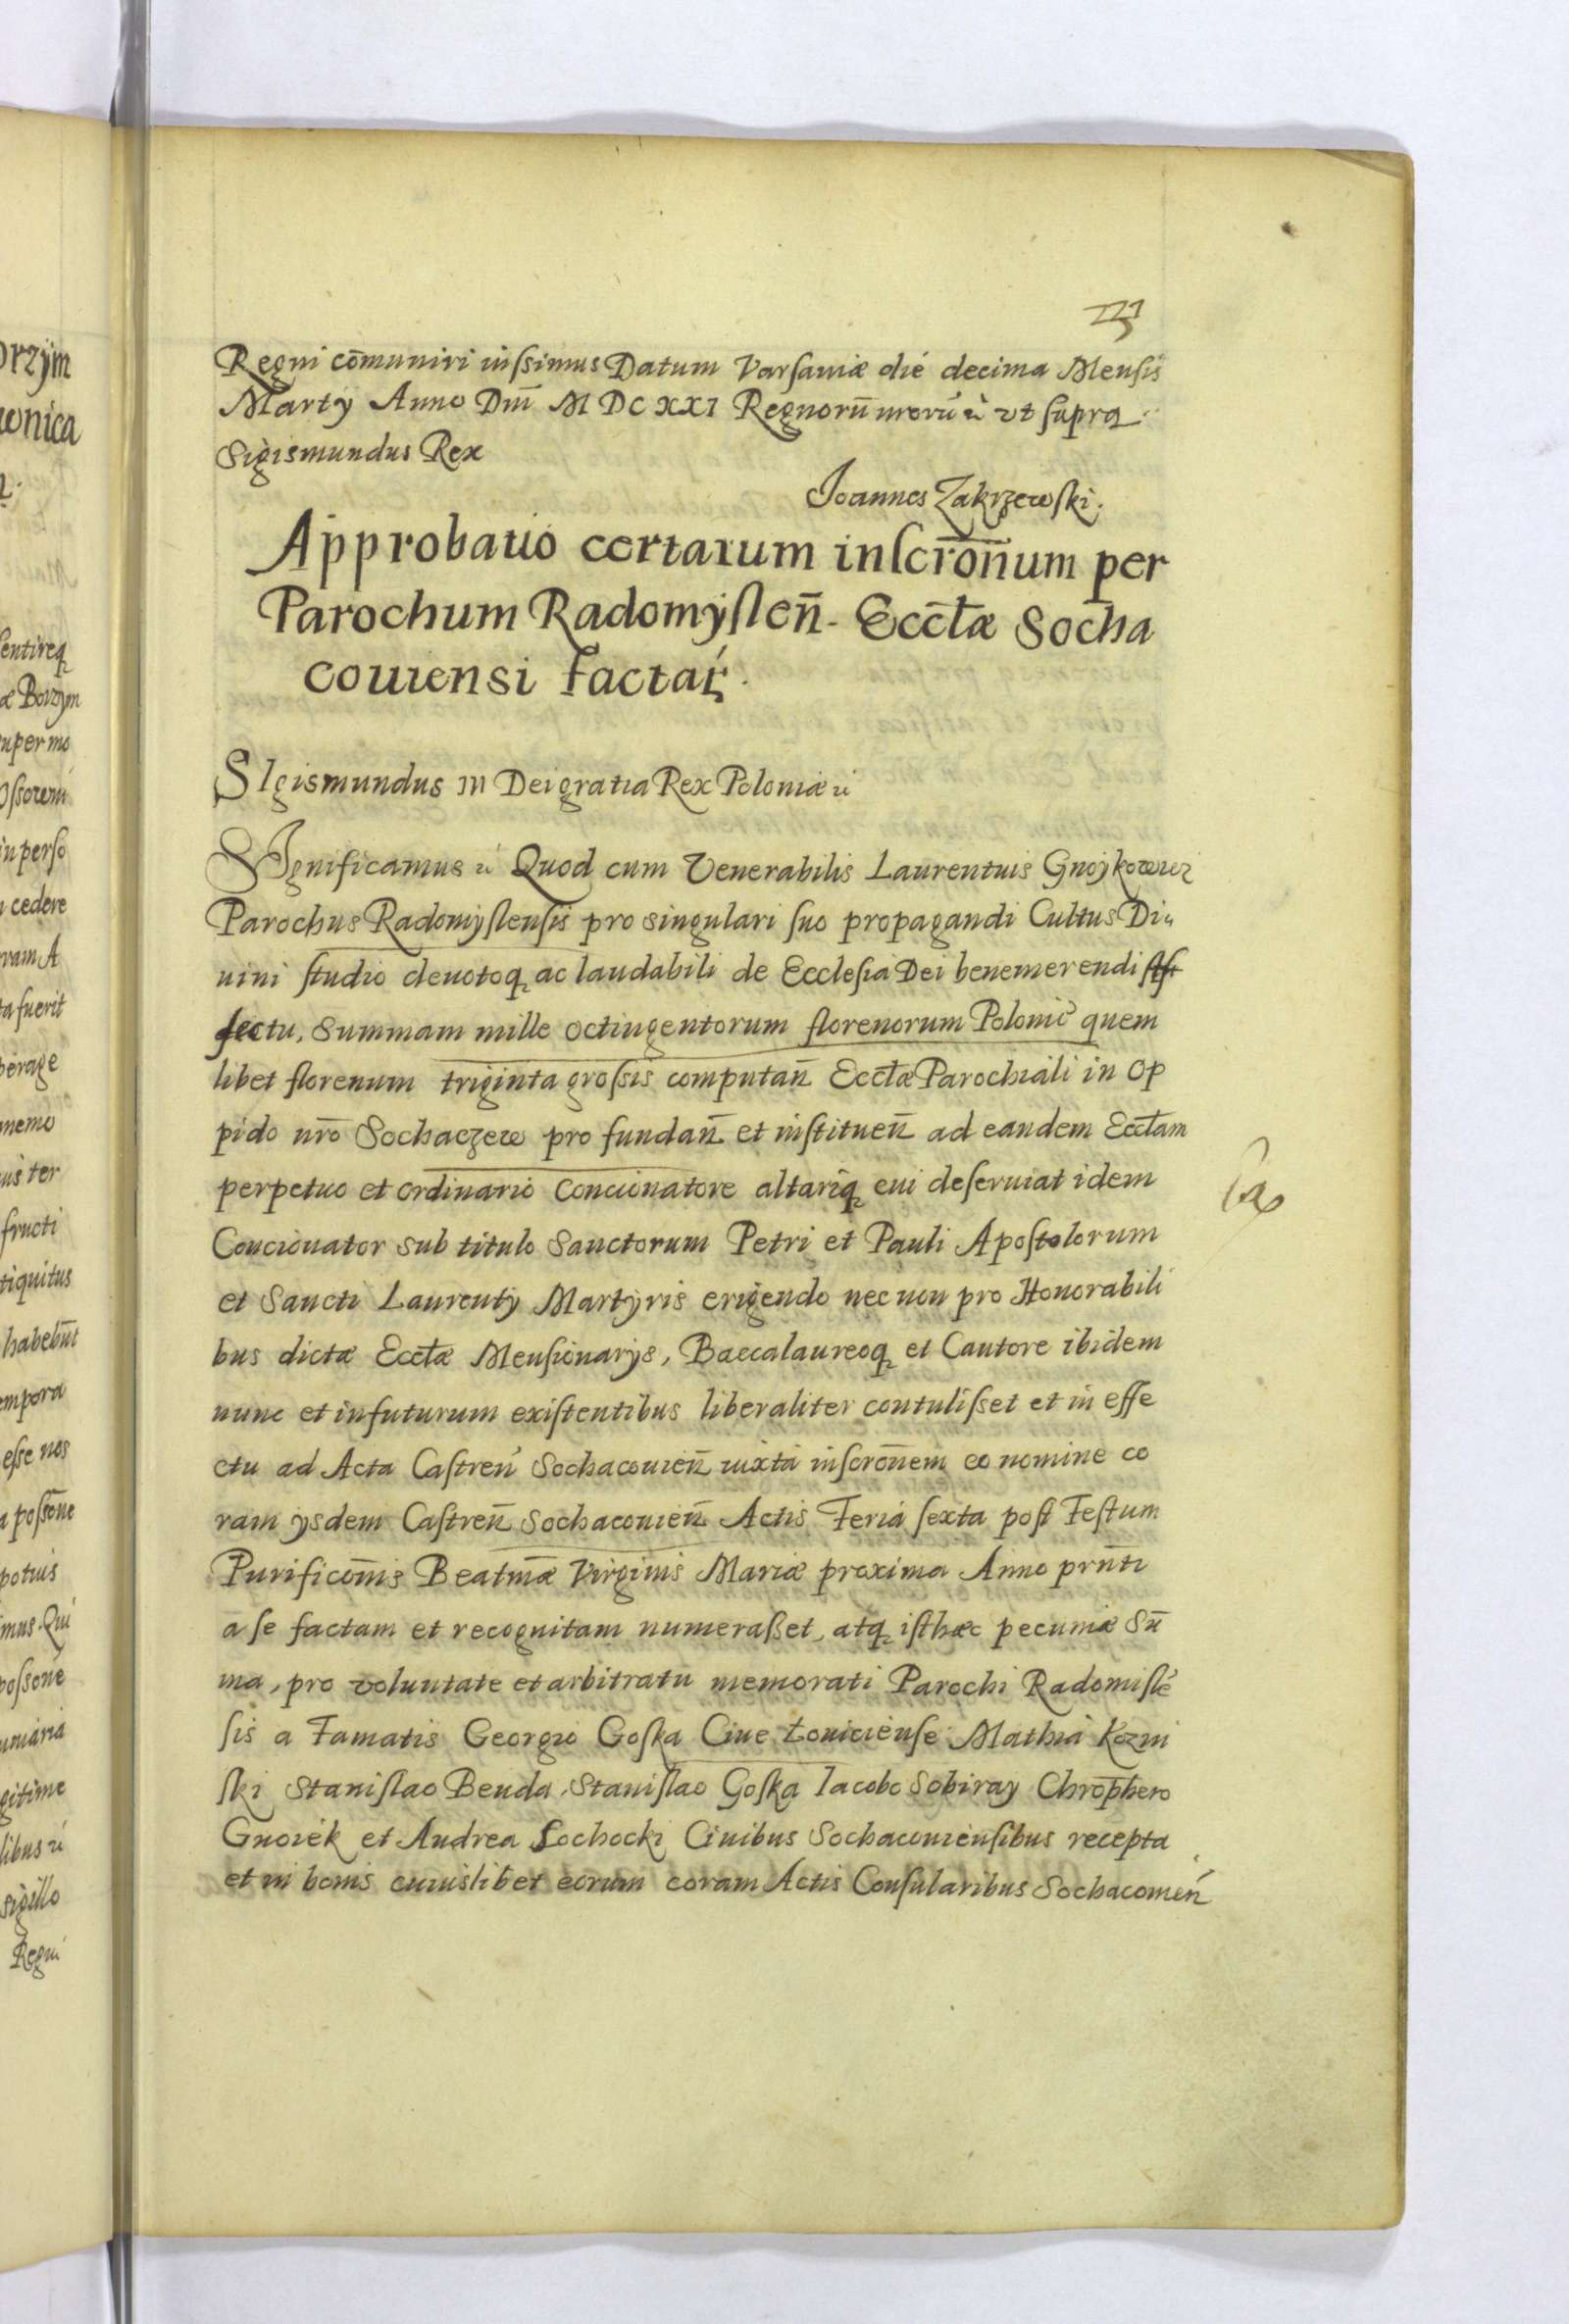 Regni com̄uniri iussimus Datum Varsauiæ die decima Mensis
Martÿ Anno Dm̄ MDCXXI Regnorū nrorū ut supra
Sigismundus Rex
Joannes Zakrzewski.
Approbatio certarum inscron̄um per
Parochum Radomÿslen̄. Eccłæ Socha
couiensi factar̄.
SIgismundus III Dei gratia Rex Poloniæ
SIgnificamus Quod cum Venerabilis Laurentius Gnoÿkowicz
Parochus Radomÿslensis pro singulari suo propagandi Cultus Di„
uini studio deuotoq ac laudabili de Ecclesia Dei benemerendi
fectu, Summam mille octingentorum florenorum Polonic̄ quem
libet florenum triginta grossis computan̄ Eccłæ Parochiali in Op
pido nr̄o Sochaczew pro fundan̄ et instituen̄ ad eandem Eccłam
perpetuo et ordinario Concionatore altariq cui deseruiat idem
Concionator sub titulo Sanctorum Petri et Pauli Apostolorum
et Sancti Laurentÿ Martÿris erigendo nec non pro Honorabili
bus dictæ Eccłæ Mensionarÿs, Baccalaureoq et Cantore ibidem
nunc et in futurum existentibus liberaliter contulisset et in effe
ctu ad Acta Castren̄ Sochacouien̄ iuxta inscron̄em eo nomine co
ram ÿsdem Castren̄ Sochacouien̄ Actis Feria sexta post Festum
Purificon̄is Beatmǣ Virginis Mariæ proxima Anno prn̄ti
a se factam et recognitam numerasset, atq isthæc pecuniæ Sū
ma, pro voluntate et arbitratu memorati Parochi Radomislē
sis a Famatis Georgio Goska Ciue Łouiciense Mathia Kozni
ski Stanislao Benda, Stanislao Goska Iacobo Sobiray Chrop̄hero
Gnoiek et Andrea Lochocki Ciuibus Sochacouiensibus recepta
et in bonis cuiuslibet eorum coram Actis Consularibus Sochacouien̄